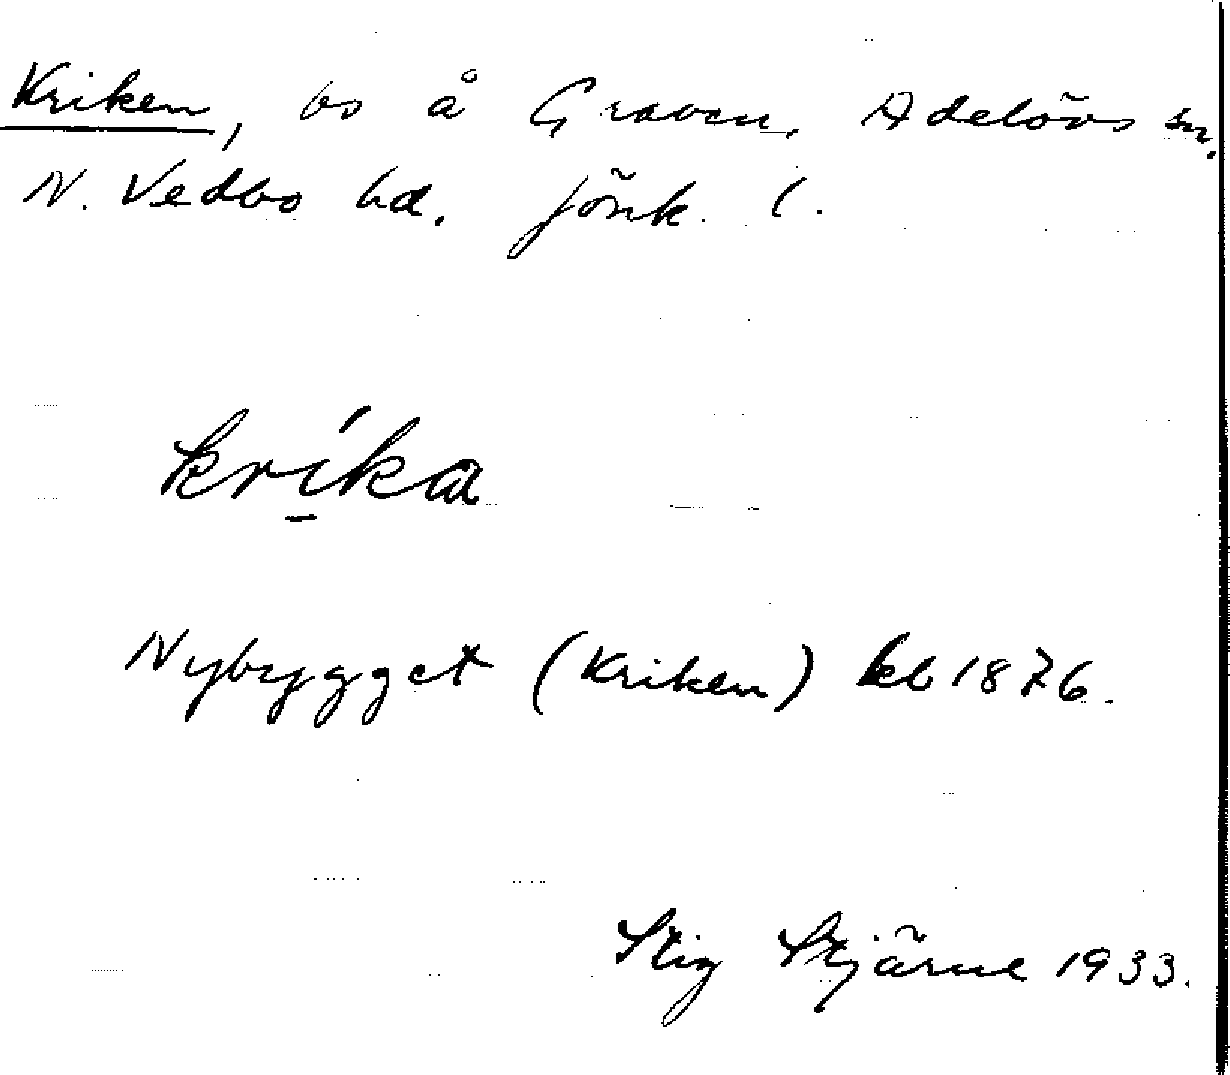 Kriken, bs å Graven, Adelövs sn.
N. Vedbo hd. Jönk. l.
kríka
Nybygget (Kriken) kb 1876.
Stig Stjärne 1933.